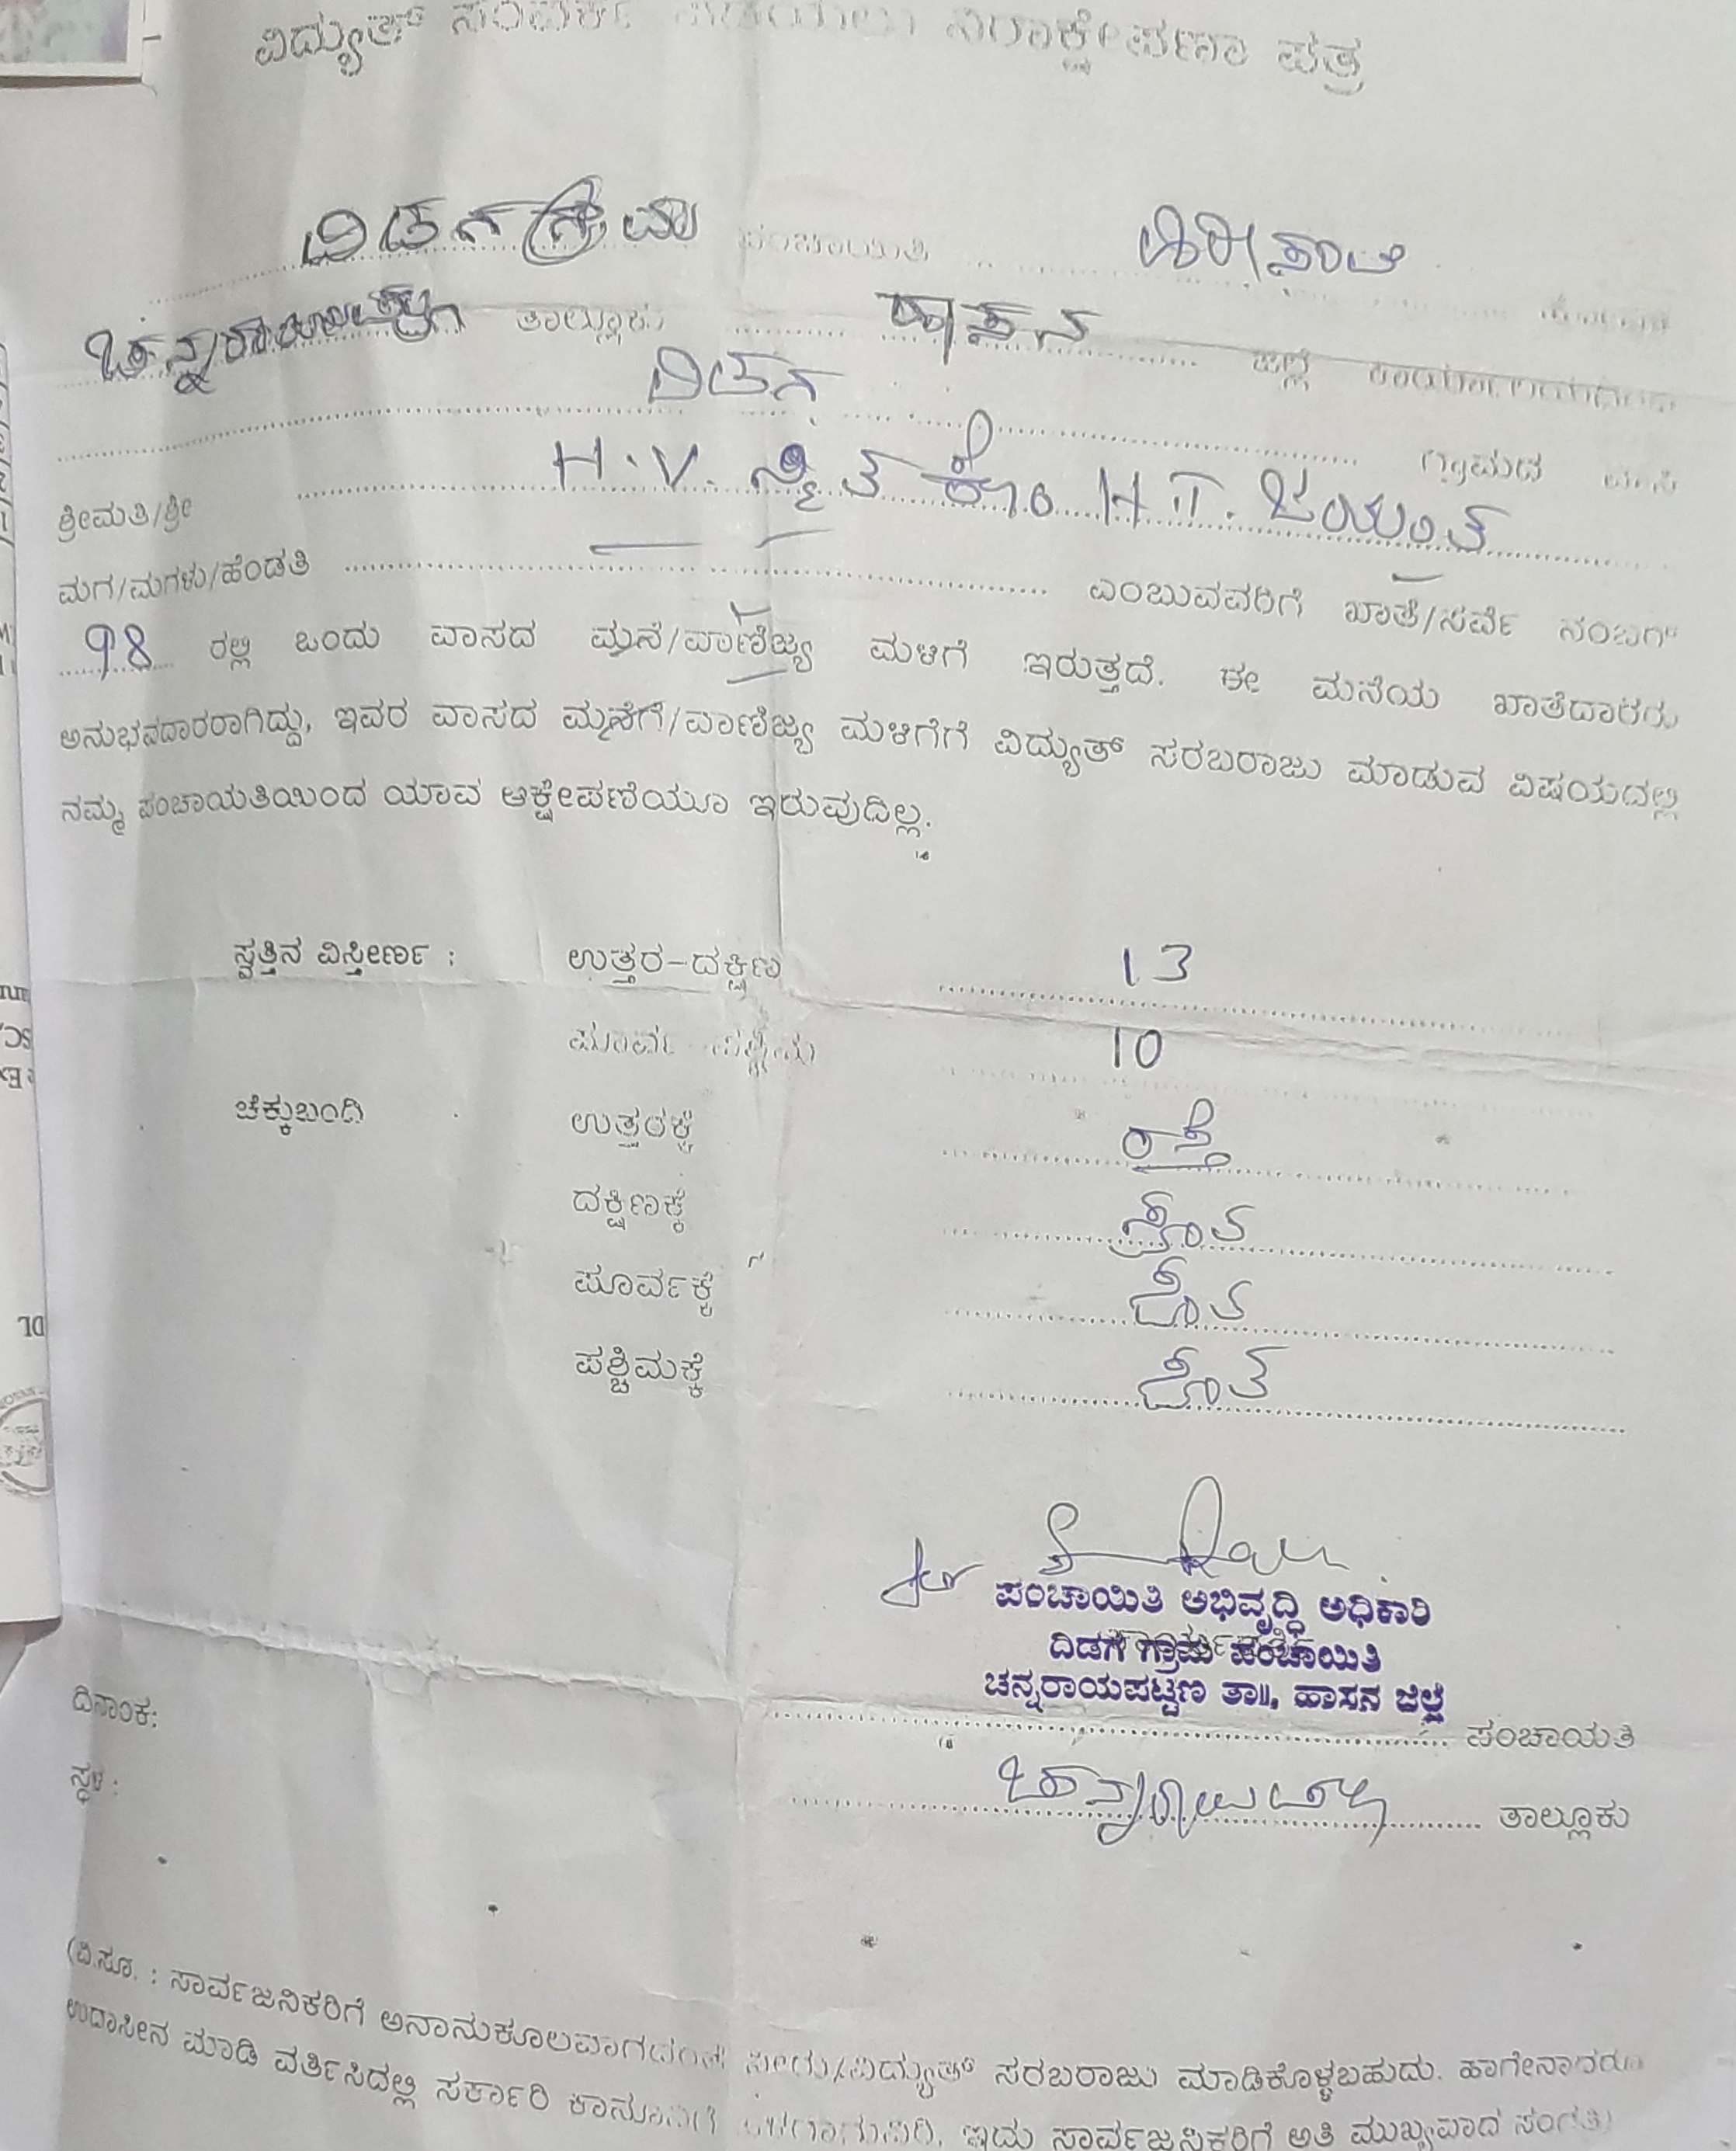 ವಿದ್ಯುತ್ ಸಂಪರ್ಕ ಪಡೆಯಲು ನಿರಾಕ್ಷೇಪಣಾ ಪತ್ರ
ದಿಡಗ ಗ್ರಾಮ ಪಂಚಾಯತಿ ಹಿರೀಸಾವೆ ಹೋಬಳಿ
ಚನ್ನರಾಯಪಟ್ಟಣ ತಾಲ್ಲೂಕು ಹಾಸನ ಜಿಲ್ಲೆ ಕಾರ್ಯಾಲಯದಿಂದ
ದಿಡಗ ಗ್ರಾಮದ ವಾಸಿ
ಶ್ರೀಮತಿ/ಶ್ರೀ H.V. ಸ್ಮಿತ ಕೋಂ H.T. ಜಯಂತ್
ಮಗ/ಮಗಳು/ಹೆಂಡತಿ ಎಂಬುವವರಿಗೆ ಖಾತೆ/ಸರ್ವೆ ನಂಬರ್
98 ರಲ್ಲಿ ಒಂದು ವಾಸದ ಮನೆ/ವಾಣಿಜ್ಯ ಮಳಿಗೆ ಇರುತ್ತದೆ. ಈ ಮನೆಯ ಖಾತೆದಾರರು
ಅನುಭವದಾರರಾಗಿದ್ದು, ಇವರ ವಾಸದ ಮನೆಗೆ/ವಾಣಿಜ್ಯ ಮಳಿಗೆಗೆ ವಿದ್ಯುತ್ ಸರಬರಾಜು ಮಾಡುವ ವಿಷಯದಲ್ಲಿ
ನಮ್ಮ ಪಂಚಾಯತಿಯಿಂದ ಯಾವ ಆಕ್ಷೇಪಣೆಯೂ ಇರುವುದಿಲ್ಲ.
ಸ್ವತ್ತಿನ ವಿಸ್ತೀರ್ಣ : ಉತ್ತರ-ದಕ್ಷಿಣ 13
ಪೂರ್ವ ಪಶ್ಚಿಮ 10
ಚೆಕ್ಕುಬಂದಿ ಉತ್ತರಕ್ಕೆ ರಸ್ತೆ
ದಕ್ಷಿಣಕ್ಕೆ
ಪೂರ್ವಕ್ಕೆ
ಪಶ್ಚಿಮಕ್ಕೆ
for
ಪಂಚಾಯಿತಿ ಅಭಿವೃದ್ಧಿ ಅಧಿಕಾರಿ
ದಿಡಗ ಗ್ರಾಮ ಪಂಚಾಯಿತಿ
ಚನ್ನರಾಯಪಟ್ಟಣ ತಾ॥, ಹಾಸನ ಜಿಲ್ಲೆ
ದಿನಾಂಕ: ಪಂಚಾಯತಿ
ಸ್ಥಳ : ಚನ್ನರಾಯಪಟ್ಟಣ ತಾಲ್ಲೂಕು
(ವಿ.ಸೂ. : ಸಾರ್ವಜನಿಕರಿಗೆ ಅನಾನುಕೂಲವಾಗದಂತೆ ನೀರು/ವಿದ್ಯುತ್ ಸರಬರಾಜು ಮಾಡಿಕೊಳ್ಳಬಹುದು. ಹಾಗೇನಾದರೂ
ಉದಾಸೀನ ಮಾಡಿ ವರ್ತಿಸಿದಲ್ಲಿ ಸರ್ಕಾರಿ ಕಾನೂನಿಗೆ ಒಳಗಾಗುವಿರಿ. ಇದು ಸಾರ್ವಜನಿಕರಿಗೆ ಅತಿ ಮುಖ್ಯವಾದ ಸಂಗತಿ)